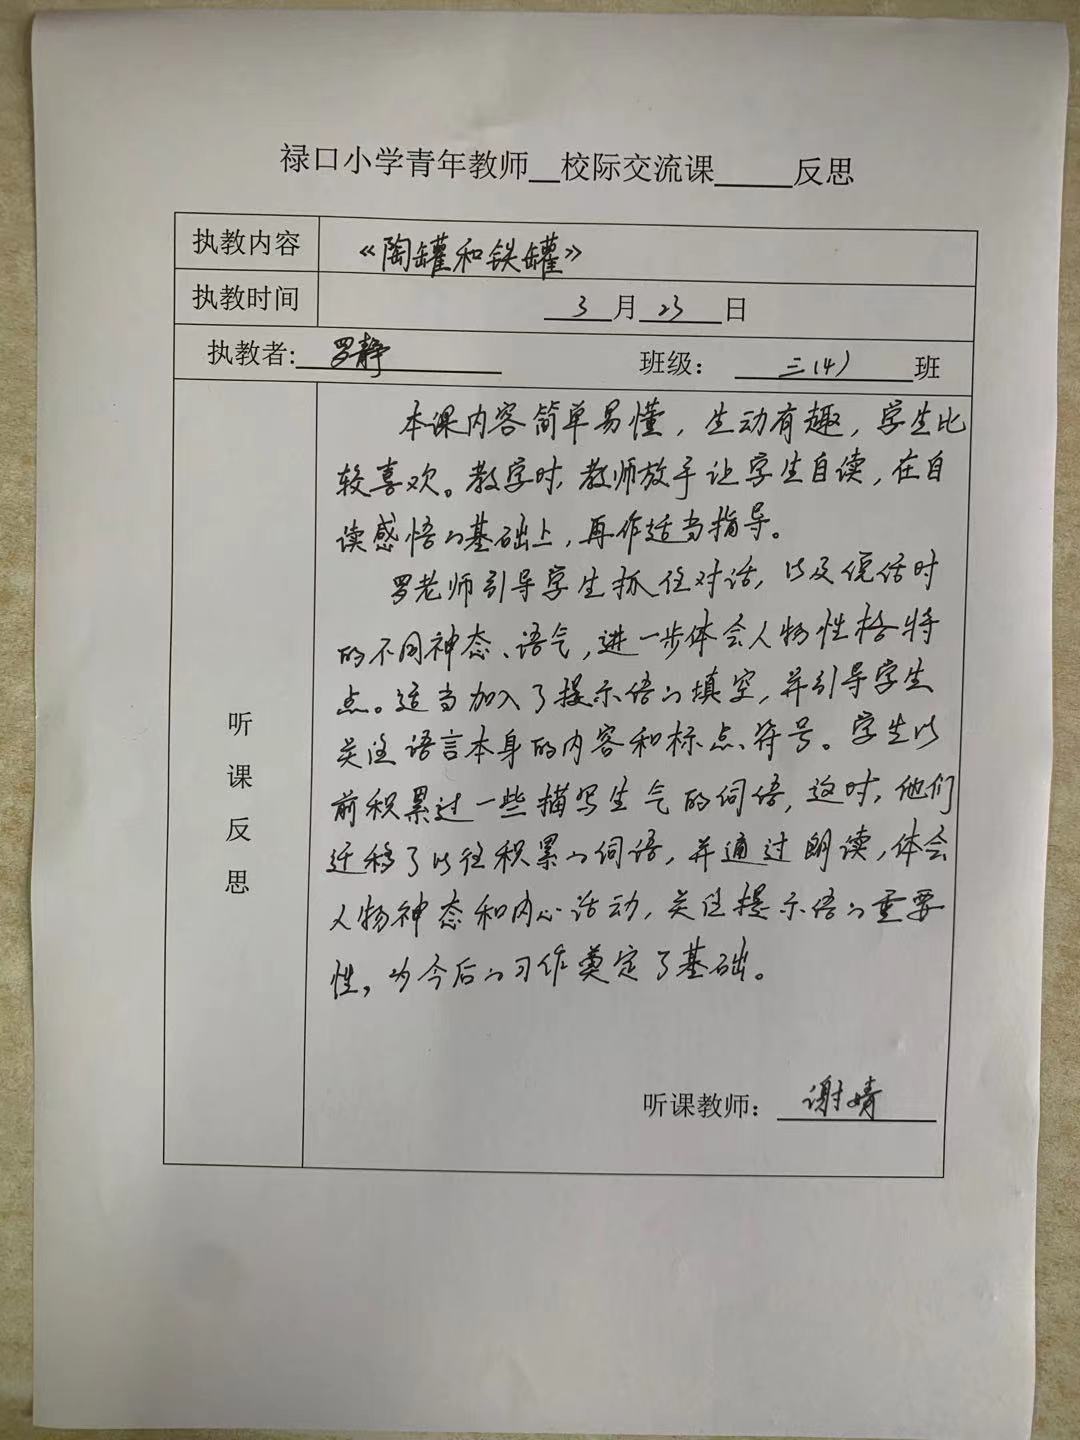 禄口小学青年教师__校际交流课_____反思
执教内容 《陶罐和铁罐》
执教时间 3月23日
执教者:罗静 班级：三(4)班
听课反思
本课内容简单易懂，生动有趣，学生比
较喜欢。教学时，教师放手让学生自读，在自
读感悟的基础上，再作适当指导。
罗老师引导学生抓住对话，以及说话时
的不同神态、语气，进一步体会人物性格特
点。适当加入了提示语的填空，并引导学生
关注语言本身的内容和标点符号。学生以
前积累过一些描写生气的词语，这时，他们
迁移了以往积累的词语，并通过朗读，体会
人物神态和内心活动，关注提示语的重要
性，为今后的习作奠定了基础。
听课教师：谢婧